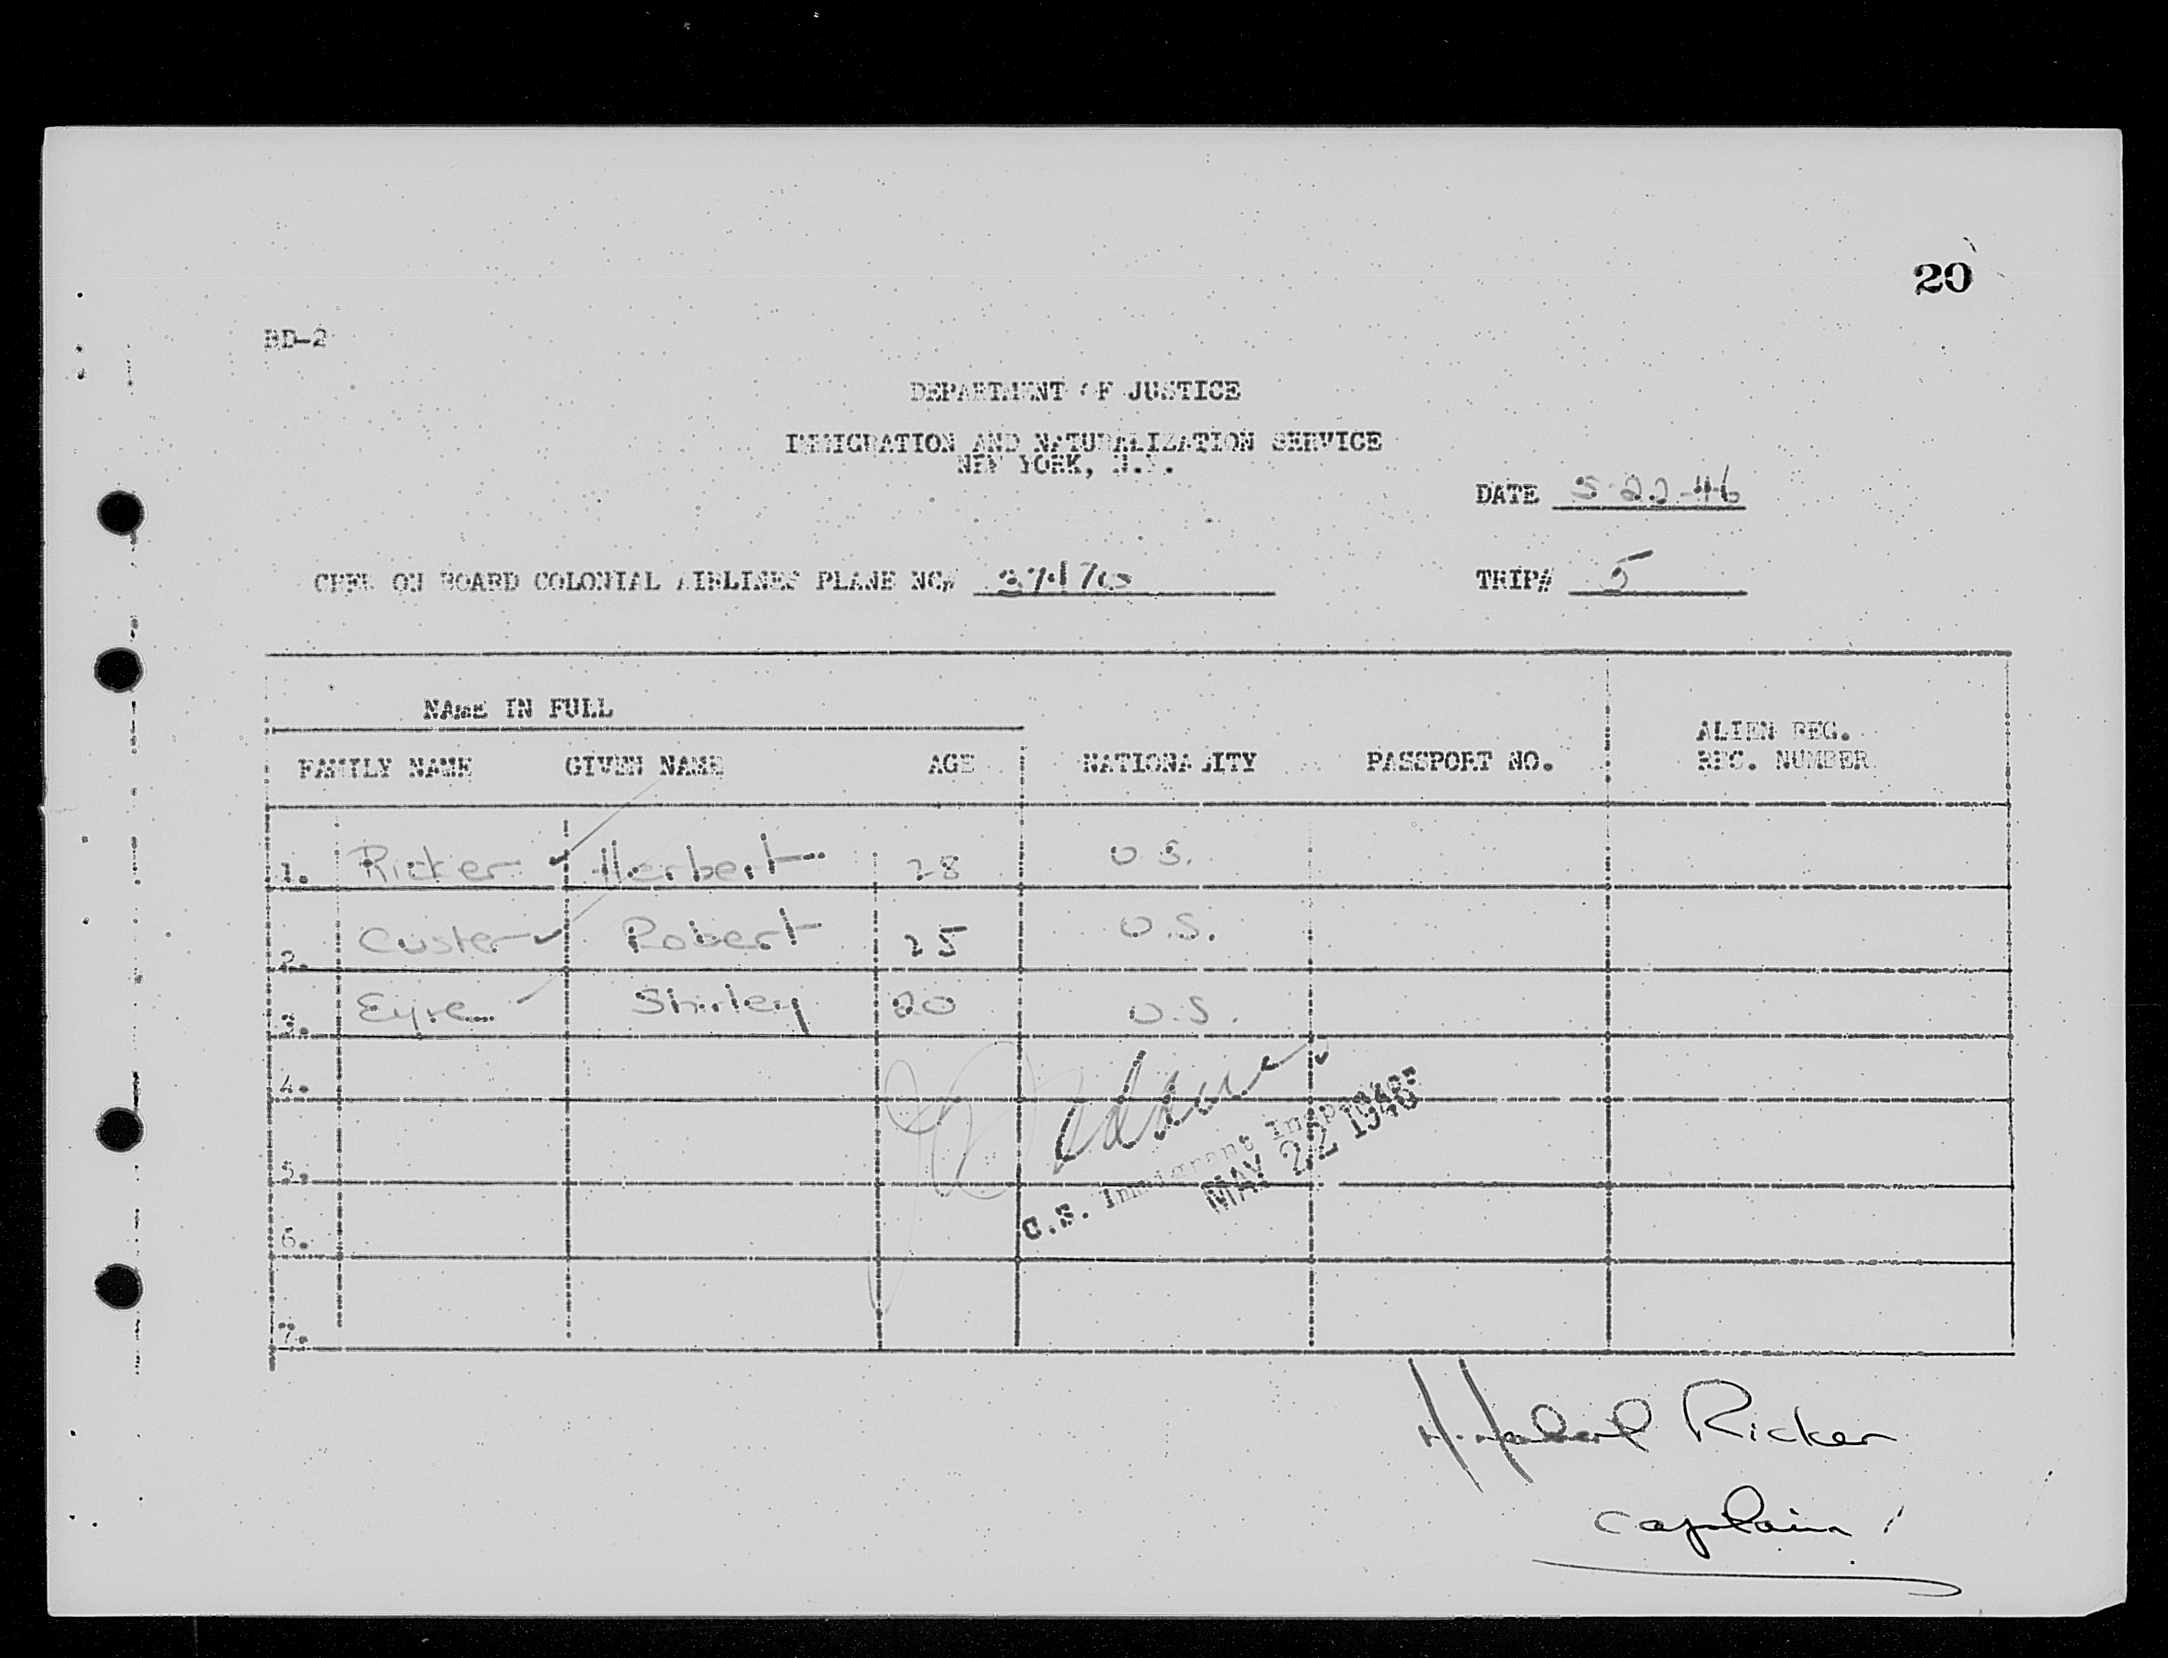 20
BD-2
DEPARTMENT OF JUSTICE
IMMIGRATION AND NATURALIZATION SERVICE
NEW YORK, N.Y.
DATE 5-22-46
CREW ON BOARD COLONIAL AIRLINES PLANE NO# 37470
TRIP# 5
NAME IN FULL
FAMILY NAME GIVEN NAME AGE NATIONALITY PASSPORT NO. ALIEN REG. REC. NUMBER
1. Ricker Herbert 28 U S.
2. Custer Robert 25 U.S.
3. Eyre Shirley 20 U.S.
4.
5.
6.
7.
U.S. Immigrant Inspector
MAY 22 1946
H. Herbert Ricker
Captain